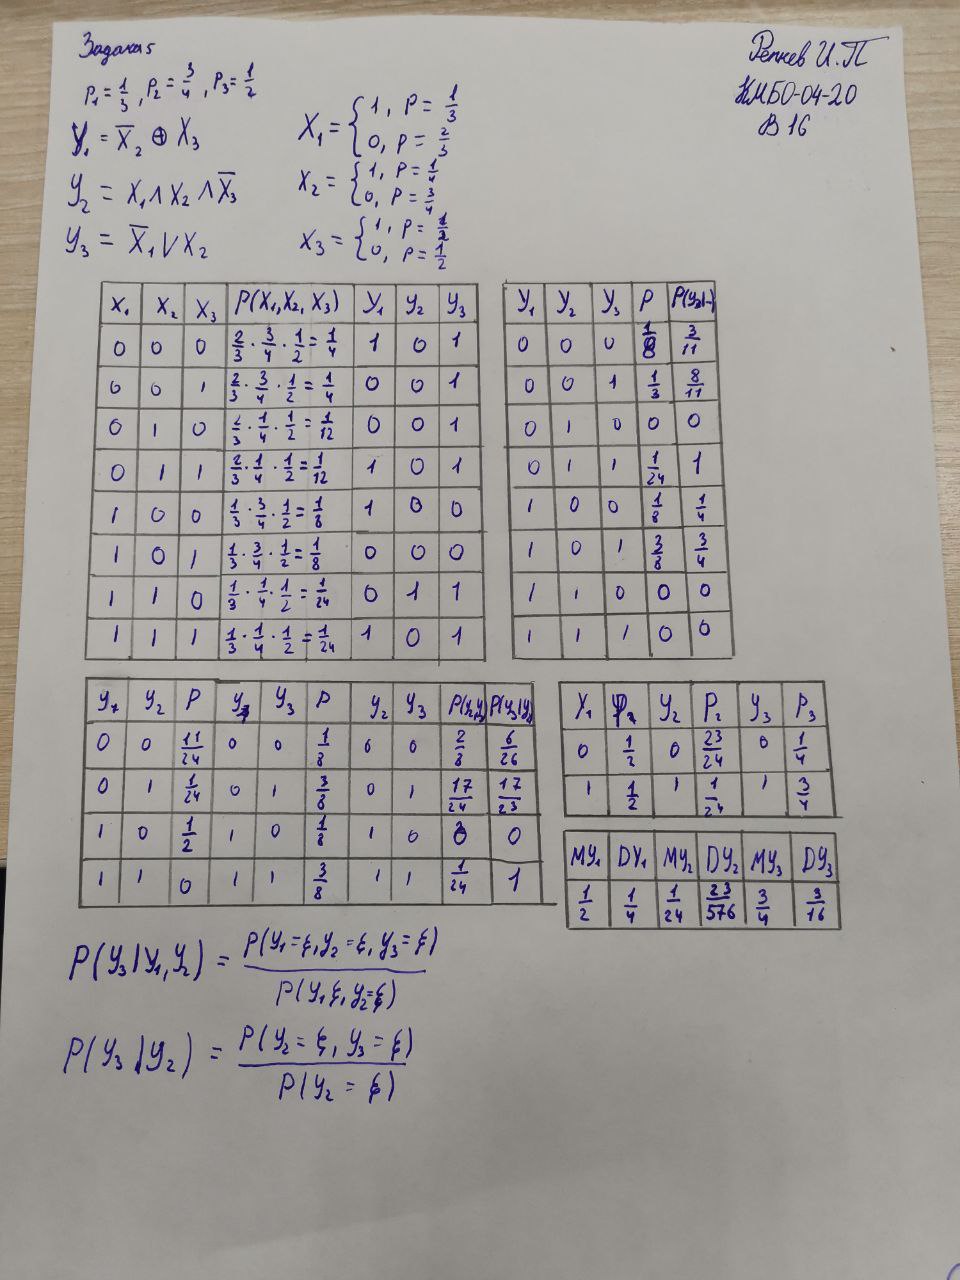 Задача 5
P₁ = 1/3, P₂ = 3/4, P₃ = 1/2
Репнев И.П
КМБО-04-20
В 16
Y₁ = X̅₂ ⊕ X₃
Y₂ = X₁ ∧ X₂ ∧ X̅₃
Y₃ = X̅₁ ∨ X₂
X₁ = { 1, P = 1/3
0, P = 2/3
X₂ = { 1, P = 1/4
0, P = 3/4
X₃ = { 1, P = 1/2
0, P = 1/2
X₁ X₂ X₃ P(X₁, X₂, X₃) Y₁ Y₂ Y₃
0 0 0 2/3 · 3/4 · 1/2 = 1/4 1 0 1
0 0 1 2/3 · 3/4 · 1/2 = 1/4 0 0 1
0 1 0 2/3 · 1/4 · 1/2 = 1/12 0 0 1
0 1 1 2/3 · 1/4 · 1/2 = 1/12 1 0 1
1 0 0 1/3 · 3/4 · 1/2 = 1/8 1 0 0
1 0 1 1/3 · 3/4 · 1/2 = 1/8 0 0 0
1 1 0 1/3 · 1/4 · 1/2 = 1/24 0 1 1
1 1 1 1/3 · 1/4 · 1/2 = 1/24 1 0 1
Y₁ Y₂ Y₃ P
0 0 0 1/8 3/11
0 0 1 1/3 8/11
0 1 0 0 0
0 1 1 1/24 1
1 0 0 1/8 1/4
1 0 1 3/8 3/4
1 1 0 0 0
1 1 1 0 0
Y₁ Y₂ P Y₃ P Y₂ Y₃
0 0 11/24 0 0 1/8 0 0 2/8 6/26
0 1 1/24 0 1 3/8 0 1 17/24 17/23
1 0 1/2 1 0 1/8 1 0 0 0
1 1 0 1 1 3/8 1 1 1/24 1
X₁ Y₂ P₂ Y₃ P₃
0 1/2 0 23/24 0 1/4
1 1/2 1 1/24 1 3/4
MY₁ DY₁ MY₂ DY₂ MY₃ DY₃
1/2 1/4 1/24 23/576 3/4 3/16
P(Y₃|Y₁,Y₂) = P(Y₁=ξ, Y₂=ξ, Y₃=ξ) / P(Y₁ ξ, Y₂=ξ)
P(Y₃|Y₂) = P(Y₂ = ξ, Y₃ = ξ) / P(Y₂ = ξ)